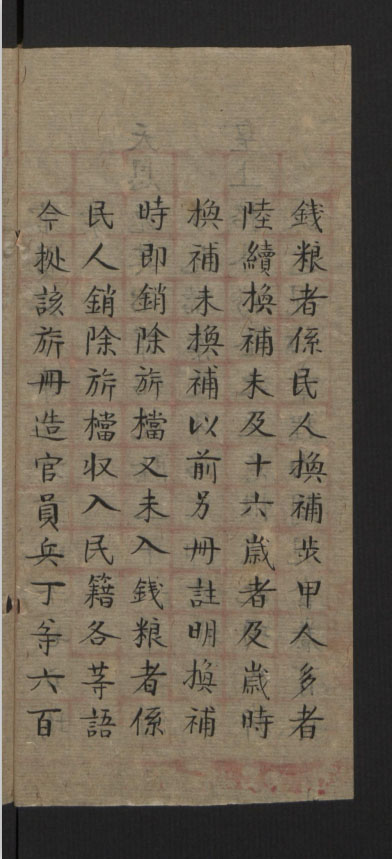 錢粮者係民人換補步甲人多者
陸續換補未及十六歲者及歲時
換補未換補以前另冊註明換補
時即銷除旂檔又未入錢粮者係
民人銷除旂檔収入民籍各等語
今㨿該旂冊造官員兵丁等六百